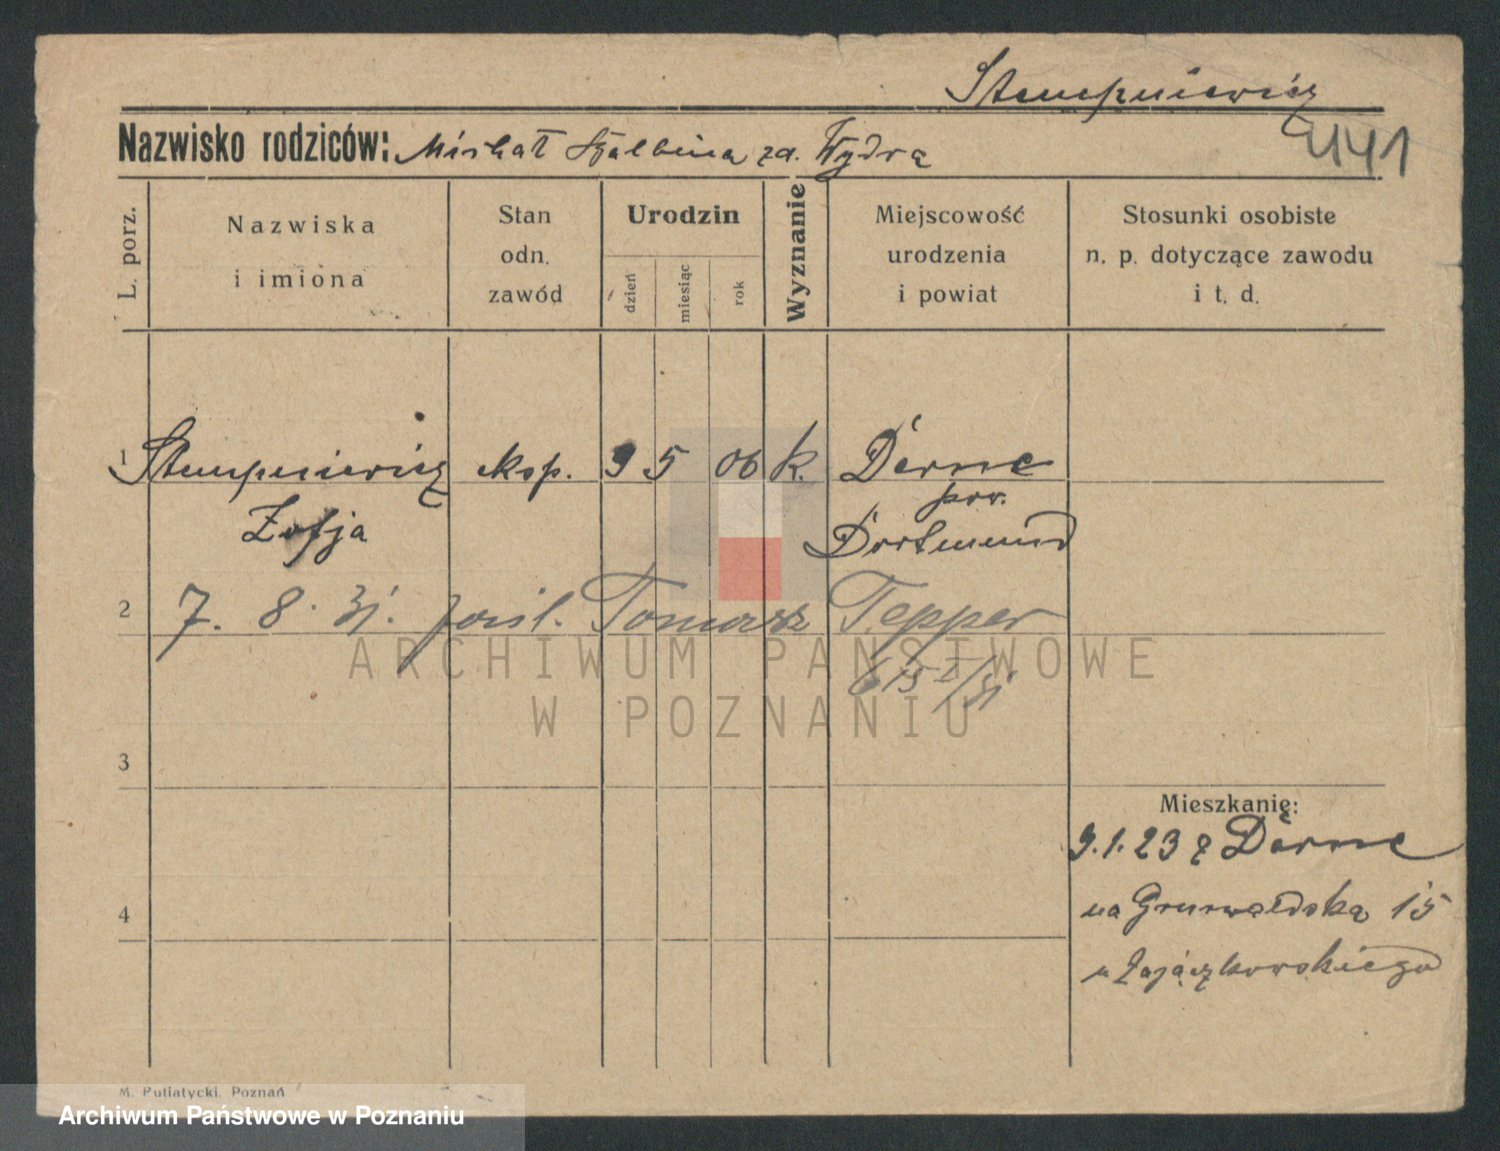 Stempniewicz
4141
Nazwisko rodziców: Michał Balbina zd. Wydra
L. porz.
Nazwiska
i imiona
Stan
odn.
zawód
Urodzin
dzień
miesiąc
rok
Wyznanie
Miejscowość
urodzenia
i powiat
Stosunki osobiste
n. p. dotyczące zawodu
i t. d.
1 Stempniewicz eksp. 9 5 06 k. Derne
Zofja
pow.
Dortmund
2 7. 8. 31. pośl. Tomasz Tepper
615 I/31
ARCHIWUM PAŃSTWOWE
W POZNANIU
3
Mieszkanie:
9.1.23 z Derne
4
na Grunwaldską 15
u Zajączkowskiego
M. Putiatycki, Poznań
Archiwum Państwowe w Poznaniu